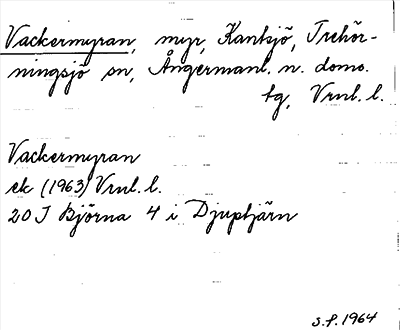 Vackermyran, myr, Kantsjö, Trehör-
ningsjö sn, Ångermanl. n. doms.
tg, Vrnl. l.
Vackermyran
ek (1963) Vrnl. l.
20 J Björna 4 i Djuptjärn
S.P. 1964